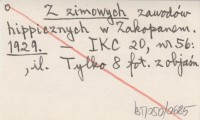 Z zimowych zawodów
hippicznych w Zakopanem.
1929. — IKC 20, nr 56:
, il. Tylko 8 fot. z objaśn
bt/250/2685